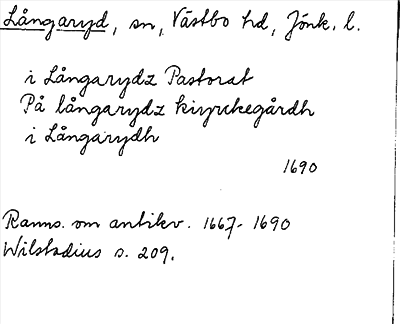 Långaryd, sn, Västbo hd, Jönk. l.
i Långarydz Pastorat
På långarydz kiyrckegårdh
i Långarydh
1690
Ranns. om antikv. 1667-1690
Wilstadius s. 209.